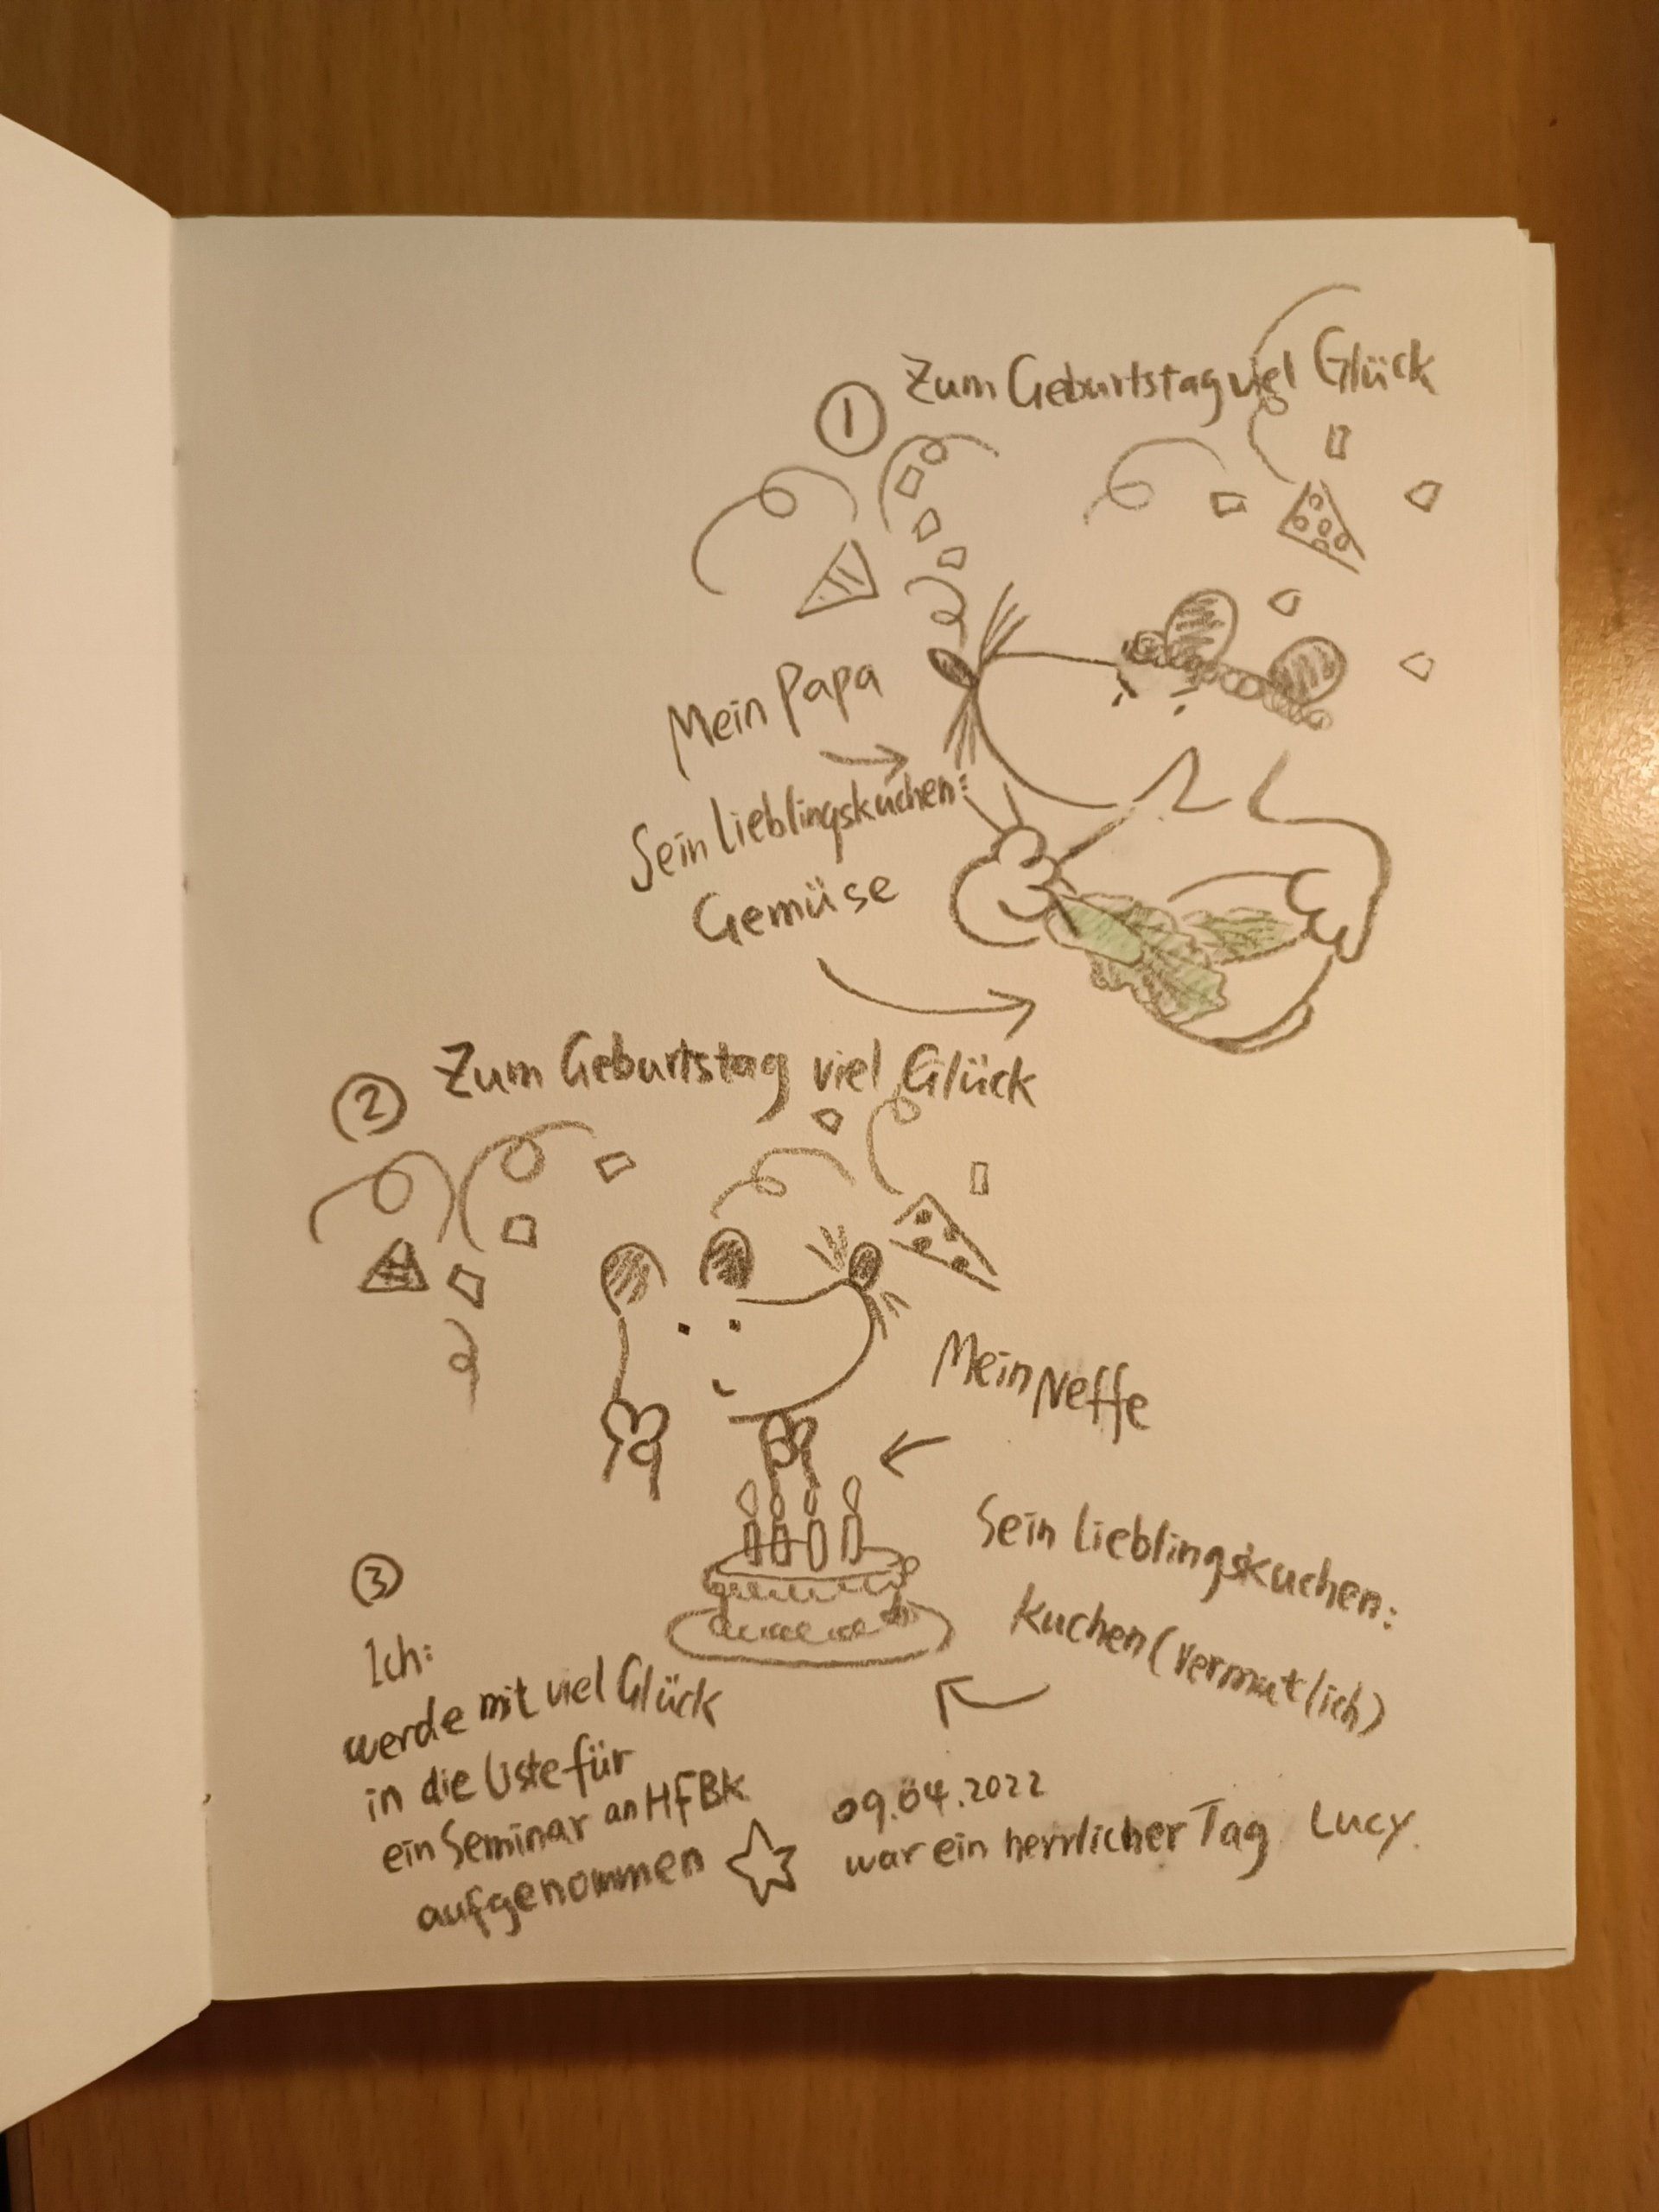 ① Zum Geburtstag viel Glück
Mein Papa
Sein Lieblingskuchen:
Gemüse
② Zum Geburtstag viel Glück
Mein Neffe
Sein Lieblingskuchen:
Kuchen (vermutlich)
③
Ich:
werde mit viel Glück
in die Liste für
ein Seminar an HFBK
aufgenommen
09.04.2022
war ein herrlicher Tag Lucy.